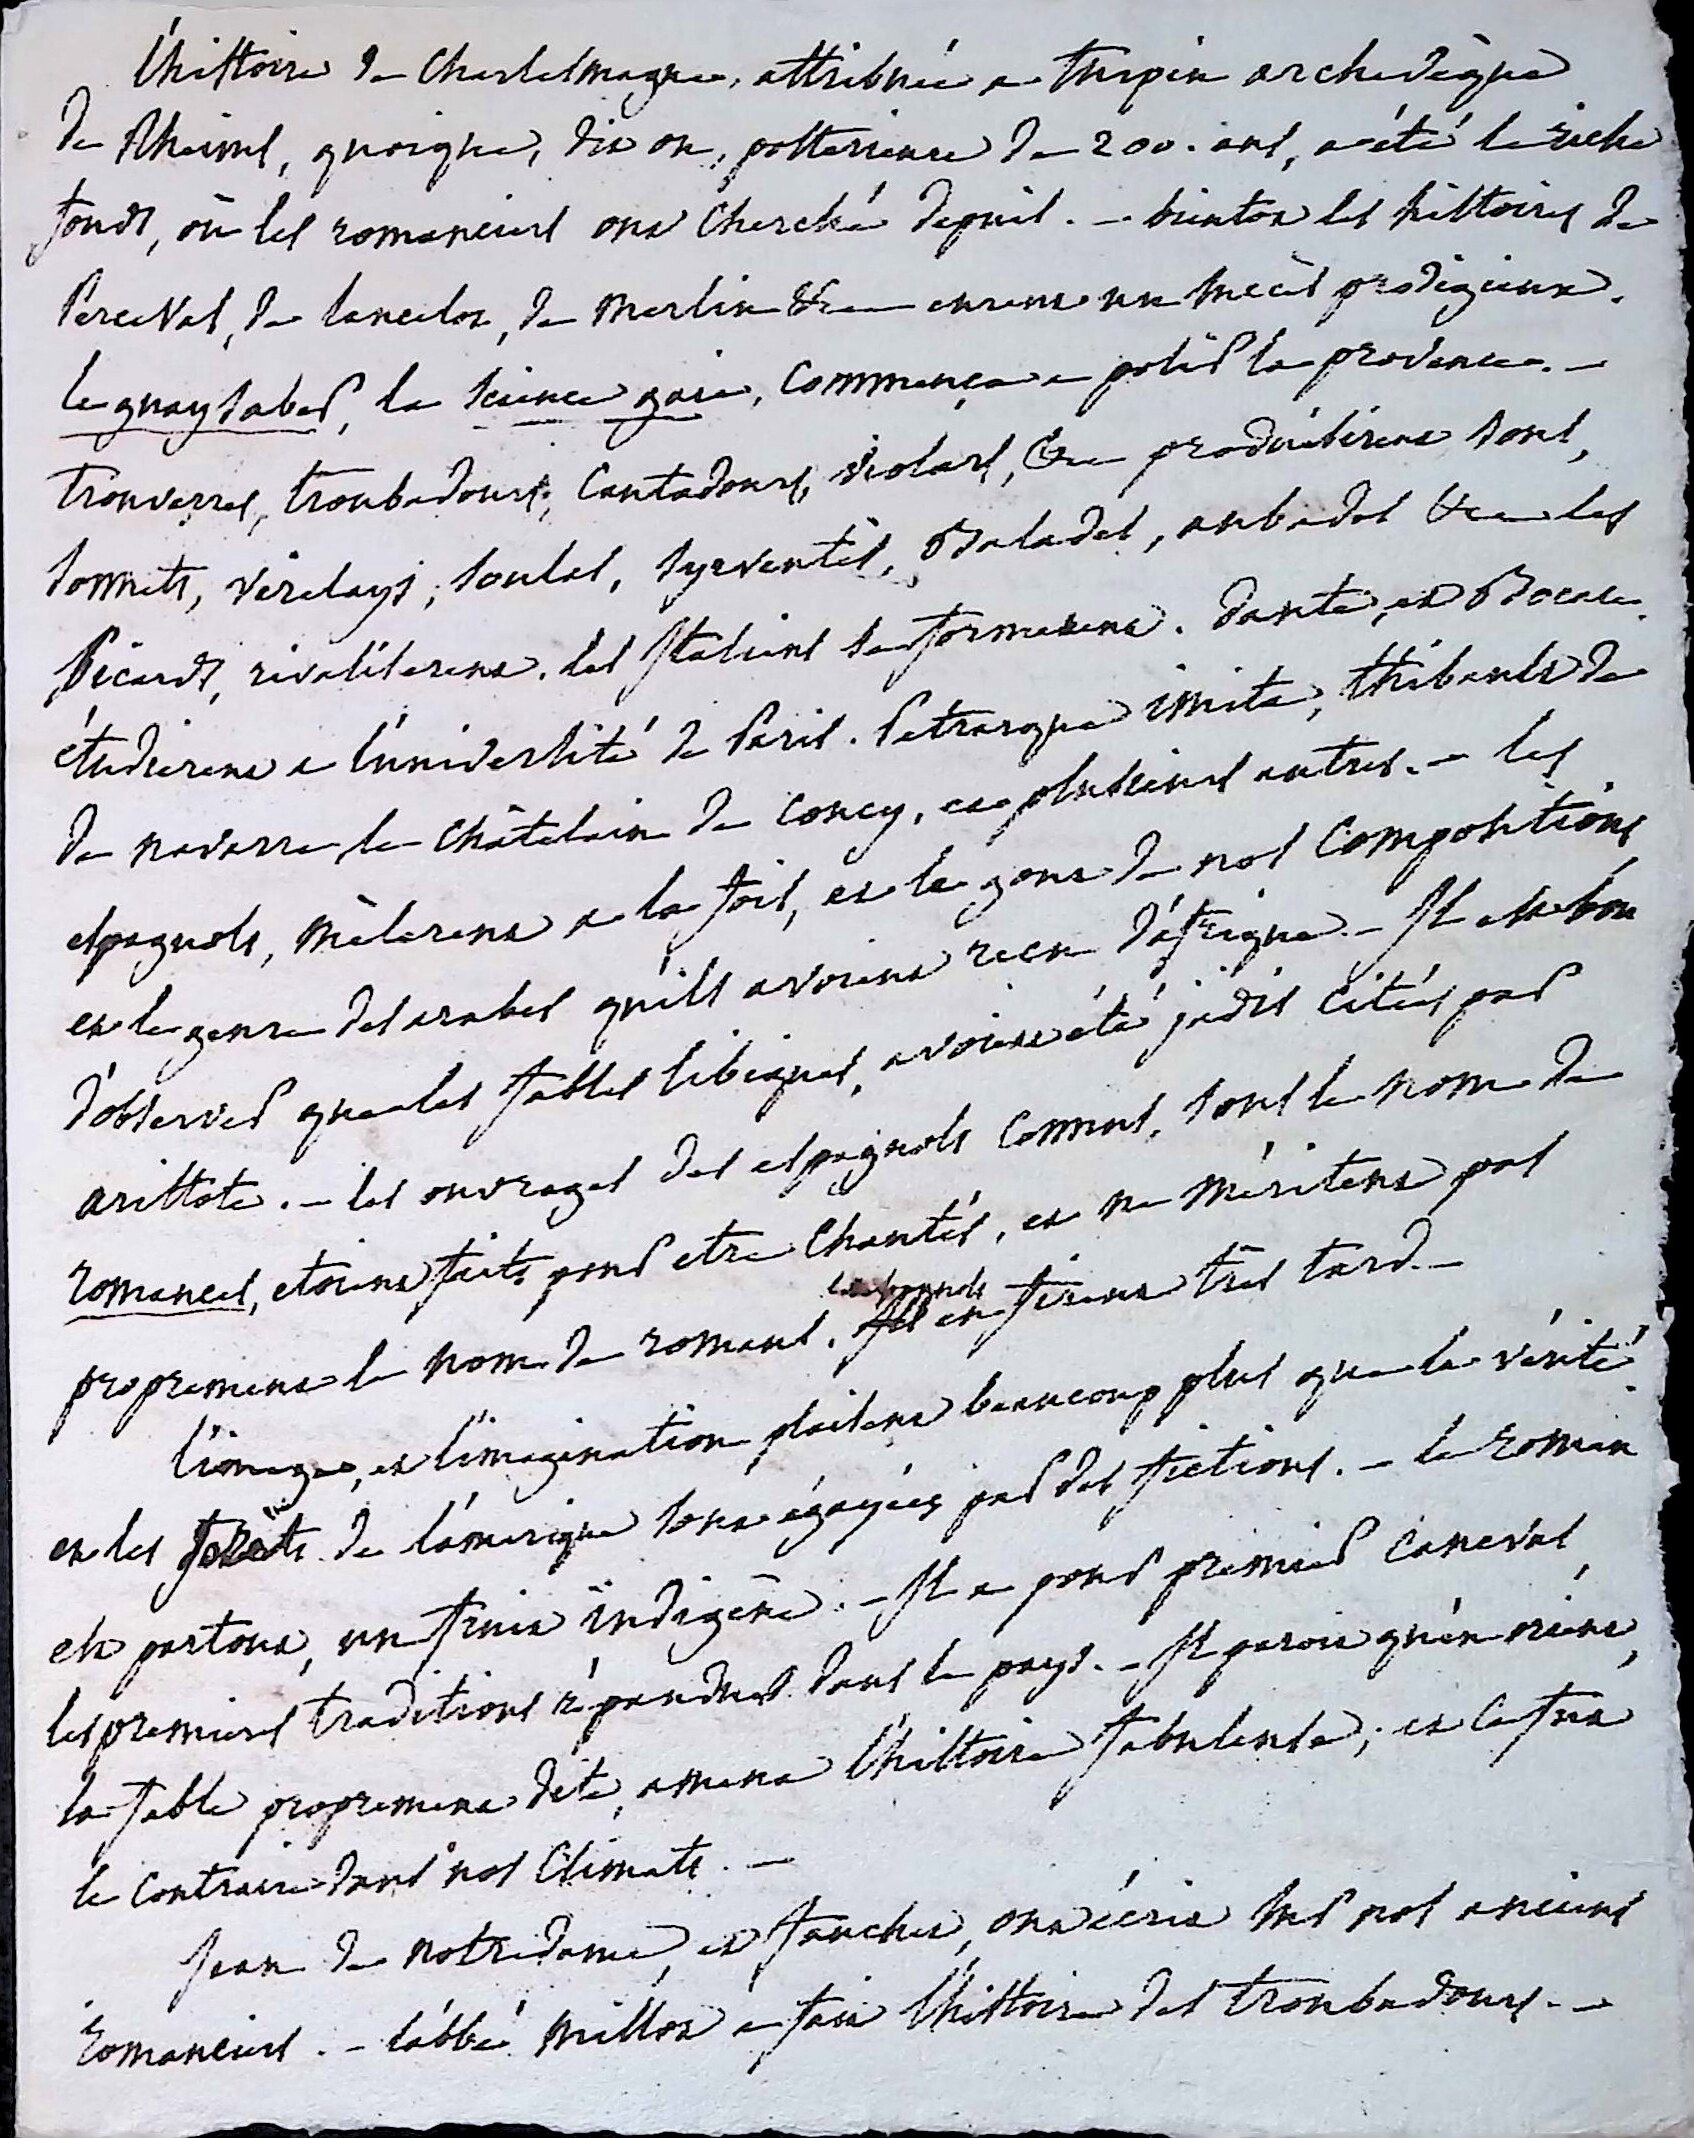 l'histoire de Charlesmagne, attribuée a turpin archevêque
de Rheims, quoique, dit on, posterieure de 200. ans, a été le riche
fonds, où les romanciers ont cherché depuis. – bientot les histoires de
Perceval, de lancelot, de merlin &c eurent un succès prodigieux.
le guay saber, la science gaie, commença a polir la provence. –
trouverres, troubadours, cantadours, violars, &c produisirent sons,
sonnets, virelays, soulas, syrventès, Balades, aubades &c les
Picards, rivaliserent. les Italiens se formerent. Dante, et Bocace
étudierent a l'université de Paris. Petrarque imita, thibault de
de navarre, le châtelain de coucy, et plusieurs autres. – les
espagnols, mêlerent a la fois, et le gout de nos compositions
et le genre des arabes qu'ils avoient recu d'afrique. – Il est bon
d'observer que les fables libiques, avoient été jadis citées par
aristote. – les ouvrages des espagnols connus, sous le nom de
romances, etoient faits pour etre chantés, et ne méritent pas
proprement le nom de romans. les espagnols en firent très tard. –
l'image, et l'imagination plaisent beaucoup plus que la vérité
et les forêts de l'amerique sont égayées par des fictions. – le roman
est partout, un fruit indigène. – Il a pour premier canevas
les premieres traditions répandues dans le pays. – Il paroit qu'en orient,
la fable proprement dite, amena l'histoire fabuleuse; et ce fut
le contraire dans nos climats. –
Jean de notredame, et fauchet, ont écrit sur nos anciens
romanciers. – l'abbé millot a fait l'histoire des troubadours. –